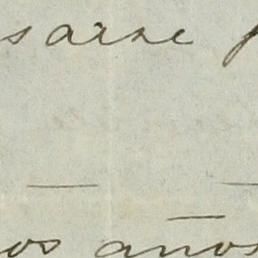 sarse
os años